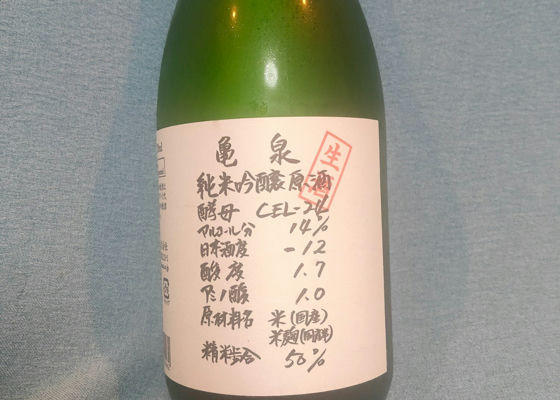 亀泉
生酒
純米吟醸原酒
酵母 CEL-24
アルコール分 14%
日本酒度 -12
酸度 1.7
アミノ酸 1.0
原材料名 米(国産)
米麹(国産米)
精米歩合 50%